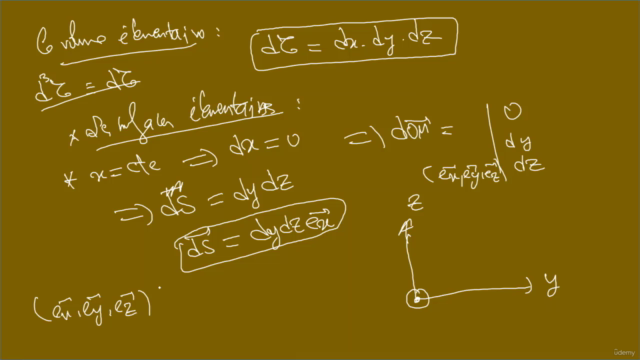 Le volume élémentaire :
dτ = dx. dy. dz
d³τ = dτ
* les surfaces élémentaires :
* x = cte ⇒ dx = 0 ⇒ dOM⃗ = | 0 dy dz (ex⃗, ey⃗, ez⃗)
⇒ dS = dy dz
dS⃗ = dydz ex⃗
z
y
(ex⃗, ey⃗, ez⃗)
ûdemy